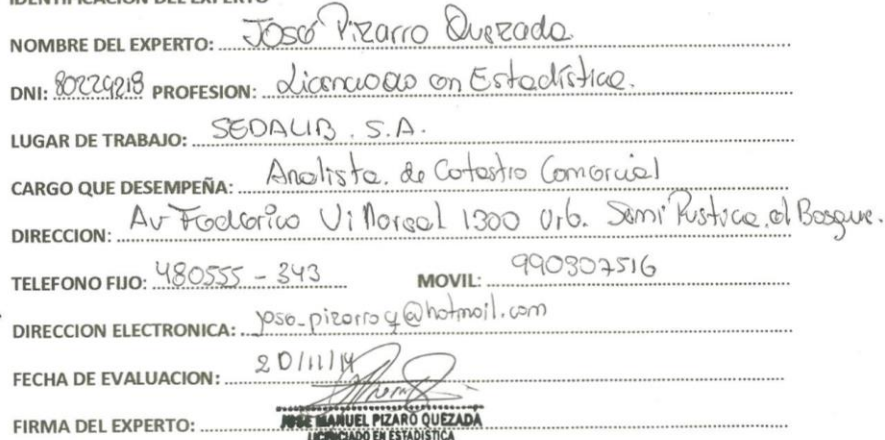 IDENTIFICACION DEL EXPERTO
NOMBRE DEL EXPERTO: José Pizarro Quezada
DNI: 80229218 PROFESION: Licenciado en Estadística.
LUGAR DE TRABAJO: SEDALIB. S.A.
CARGO QUE DESEMPEÑA: Analista. de Catastro Comercial
DIRECCION: Av Federico Villarreal 1300 Urb. Semi Rustica, el Bosque.
TELEFONO FIJO: 480555 - 343 MOVIL: 990307516
DIRECCION ELECTRONICA: jose-pizarroq@hotmail.com
FECHA DE EVALUACION: 20/11/14
FIRMA DEL EXPERTO:
JOSE MANUEL PIZARO QUEZADA
LICENCIADO EN ESTADISTICA